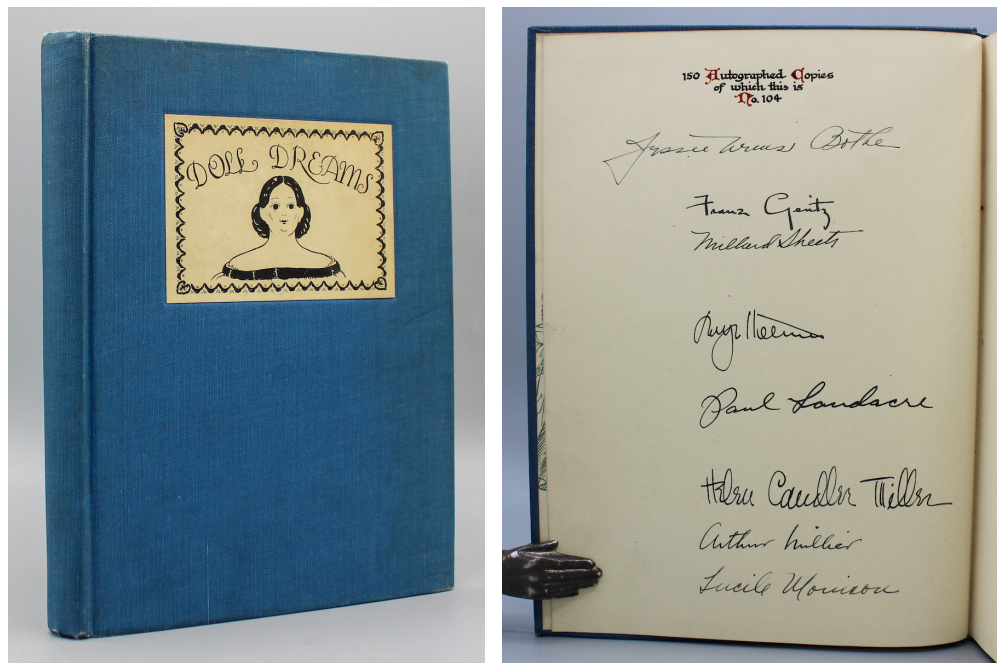 DOLL DREAMS
150 Autographed Copies
of which this is
No. 104
Jessie Arms Botke
Franz Geritz
Millard Sheets
Paul Landacre
Helen Candler Miller
Arthur Millier
Lucile Morrison